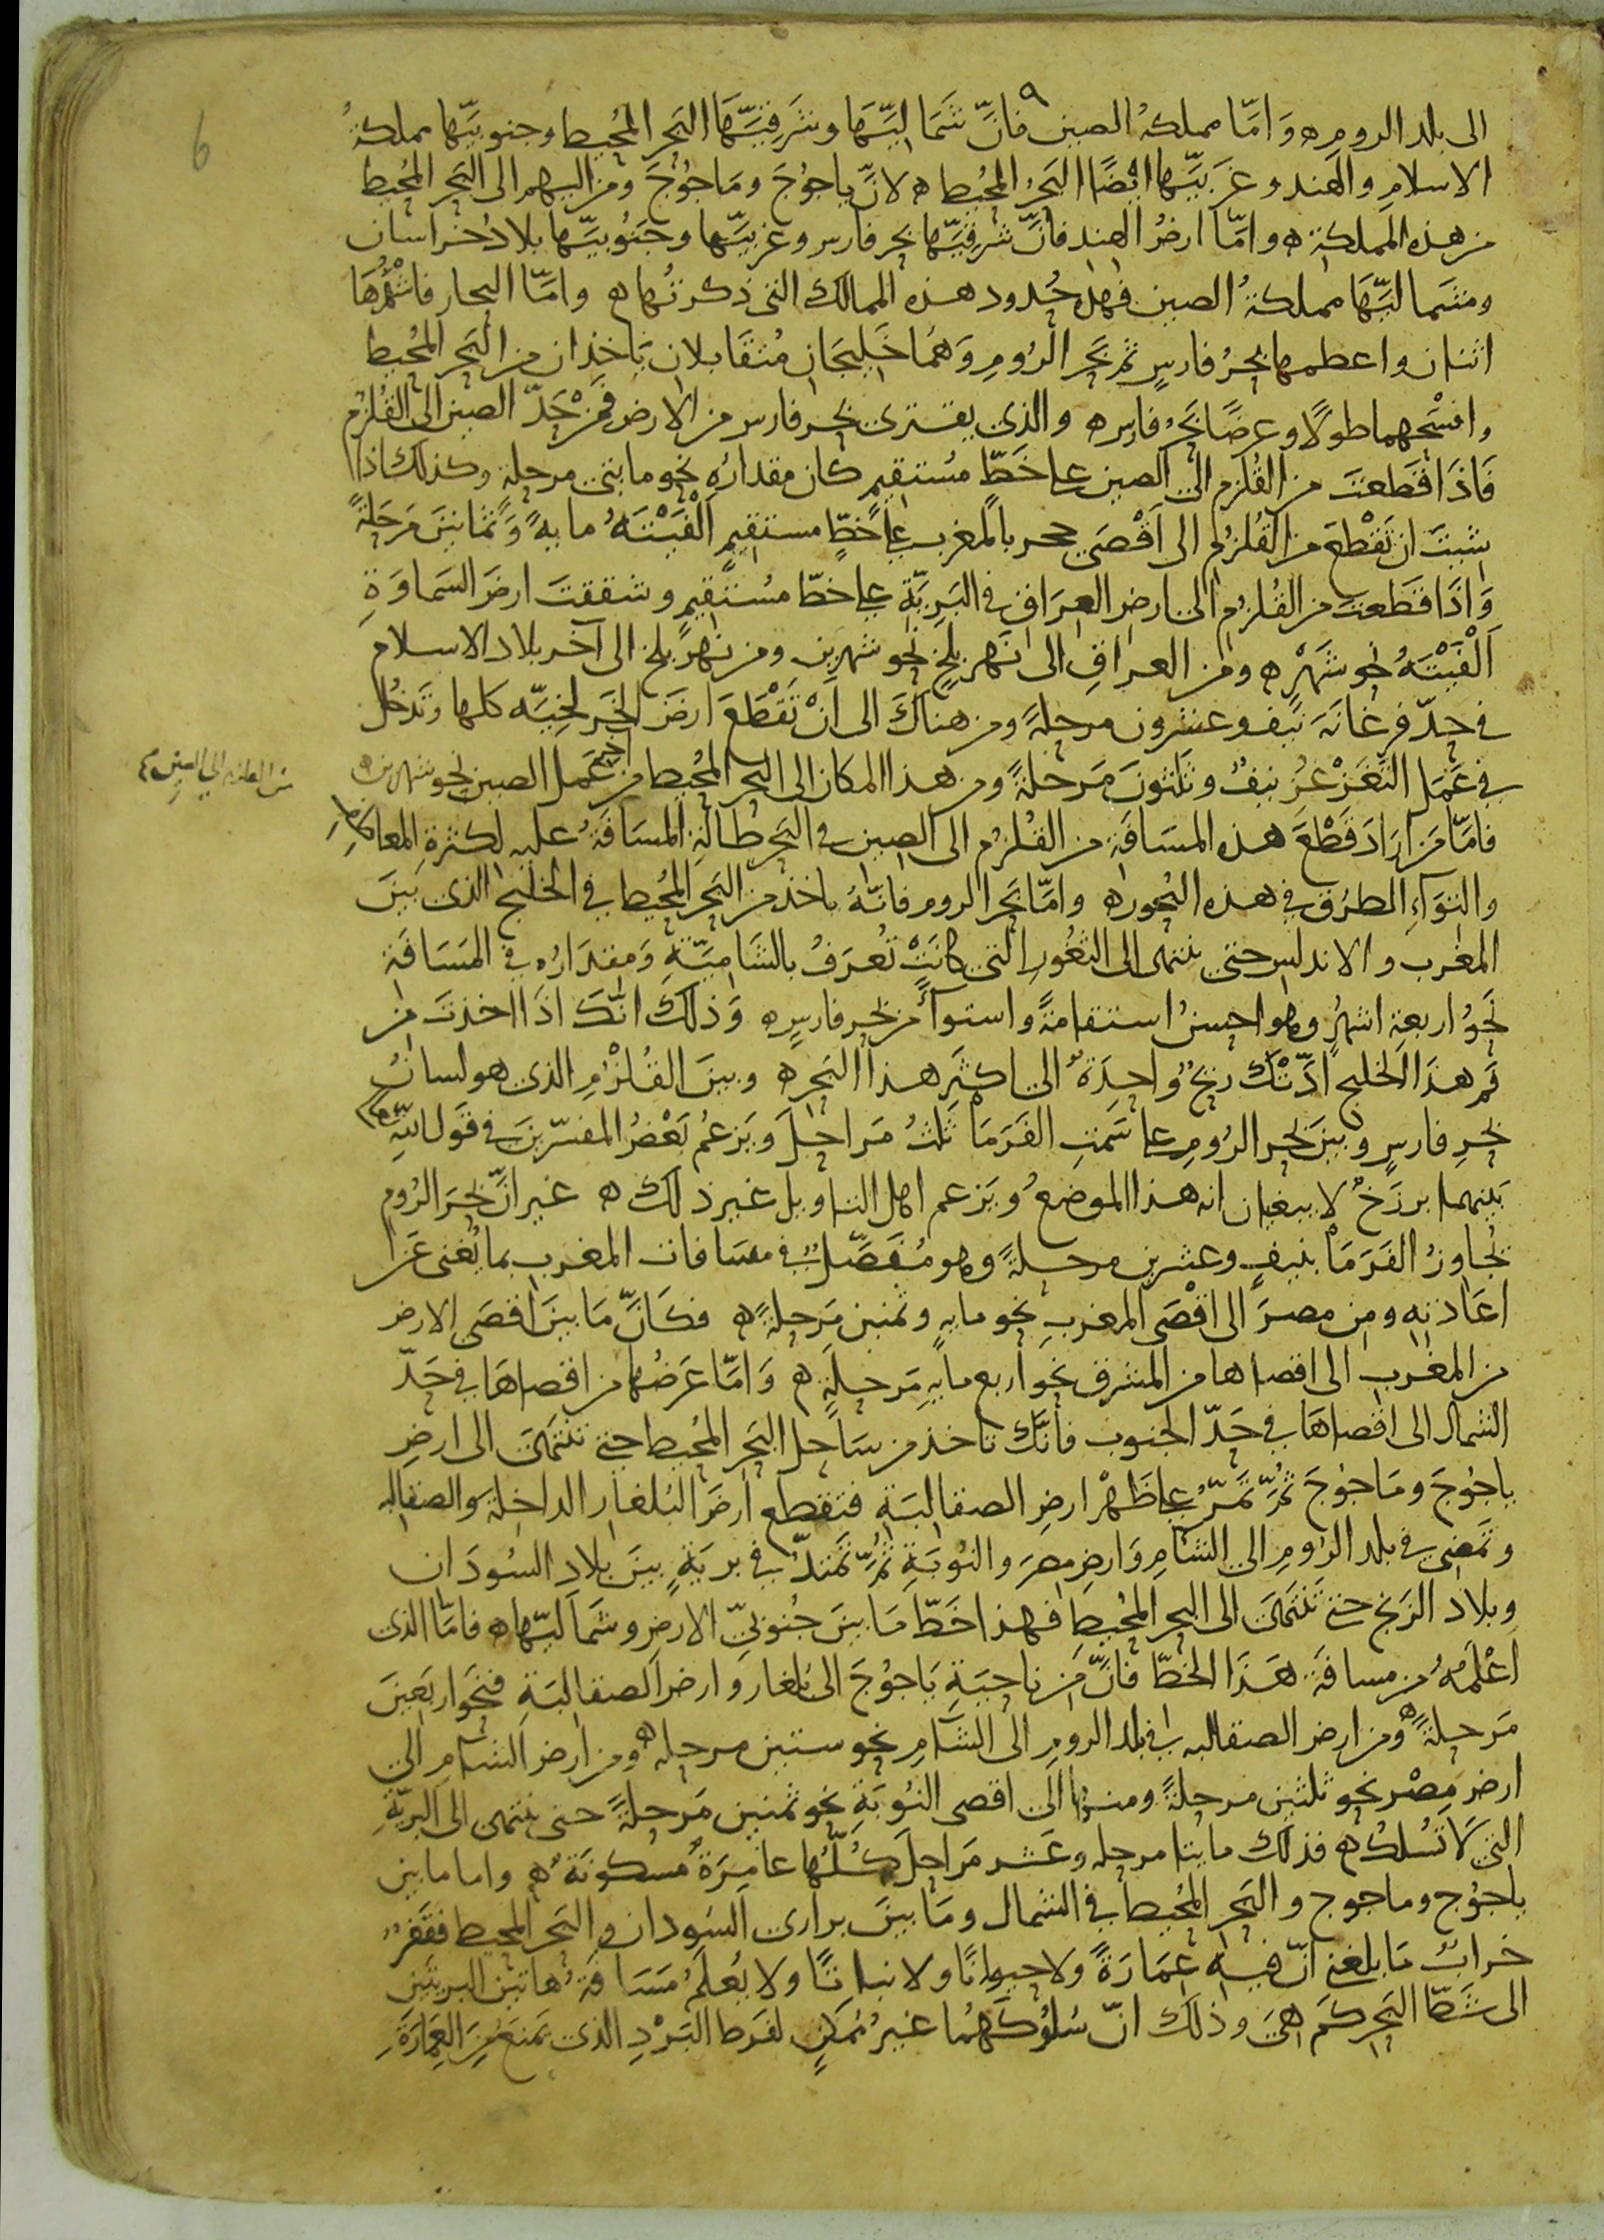 ٩
6
الى بلد الروم ه وَامّا مملكةُ الصين فانّ شَمَاليَّهَا وشَرقيَّهَا البَحر المُحيط وجنوبيّها مملكةُ
الاسلامِ والهند وغَربيَّها ايْضًا البَحرُ المحيُط ه لانّ ياجُوُجَ ومَاجُوُجَ ومن اليهم الى البَحر المُحيط
من هذه المملكة ه وامّا ارضُ الهند فانّ شرقيَّها بحر فارس وغربيَّها وجَنُوبيَّها بلادُ خراسان
وشَماليَّهَا مملكةُ الصين فهذه حُدود هذه الممالك التى ذكرتُها ه وامّا البحار فاشْهُرُهَا
اثنان واعظمها بحرُ فارسٍ ثم بَحر الرُومِ وَهُمَا خَليجَانِ مُتقَابلان يَاخذان من البَحر المُحيط
وافسَحُهما طولاً وعرضًا بَحرُ فارس ه والذى يفترى بحر فارس من الارض فمِنْ حَدّ الصين الى القُلزُم
فَاذَا قَطعتَ من القُلزم الى الصين على خَطٍّ مُستقيمٍ كان مقدارُه نحو مايتى مرحلة وكذلك اذا
شيتَ ان تَقْطعَ من القُلزُم الى اَقْصَى حجر بالمغرب على خطٍّ مستقيمٍ اَلْفَيْتَهُ مايةً وَثمانينَ مَرحَلةً
وَاذَا قَطَعتَ من القُلزُم الى ارض العرَاق فى البَريَّة على خطّ مُستقيمٍ وشققتَ ارضَ السَماوَةِ
اَلْفَيْتَهُ نحو شَهَرْ ه ومن العراقِ الى نَهر بلخٍ نحو شهرين ومن نهر بلخ الى آخر بلاد الاسلام
فى حدّ فرغانَهَ نيف وعشرون مرحلةً ومن هناكَ الى اَنْ تَقْطَعَ ارضَ الخَرلخيّه كلها وتَدخُل
فى عَمَل التَغَزْغُز نيفٌ وثلثونَ مَرحلةً ومن هذا المكان الى البَحر المُحيط من آخر عَمَل الصين نحو شهرين ه
فامّا مَنْ ارَادَ قَطْعَ هذه المسَافَة من القُلزُم الى الصين فى البَحر طَالَتِ المسَافَةُ عليه لكثرةِ المعاطفِ
والتوَآءِ الطرُق فى هذه البُحور ه وامّا بَحر الروم فانّهُ ياخذ من البَحر المُحيط فى الخليج الذى بَينَ
المغرب والاندلس حتى ينتهى الى الثغُورِ التى كانَتْ تُعرَفُ بالشَاميّةِ وَمقدَارُه فى المَسَافَة
نَحوُ اربعة اشهُرٍ وهو احسنُ استقامةً واستوآءً من بحر فارسٍ ه وَذلكَ انّكَ اذَا اخذتَ من
فَم هذَا الخليج ادّتْكَ ريحٌ واحدَةٌ الى اكثرِ هذا البَحر ه وبينَ القُلزُمِ الذى هو لسانُ
بحرِ فارسٍ وبينَ بحر الرُومِ على سَمتِ الفَرَمَا ثلثُ مَراحلَ ويَزعمُ بَعْضُ المفسّرينَ فى قَول الله
بَينهما برزَخٌ لا يبغيان انه هذا الموضعُ ويَزعم اهل التاويل غير ذلك ه غير انّ بَحرَ الرُوم
يُجاوزُ الفَرَمَا بنيفٍ وعشرين مرحلةً وهو مُفَصَّلٌ فى مسَافات المغرب بما يُغنى عَن
اعَادته ومن مصرَ الى اقْصَى المغربِ نحو مايةٍ وثمنين مَرحلةً ه فكَانّ مَا بينَ اقصَى الارض
من المغرب الى اقصاها من المشرق نحو اربع مايةِ مَرحلةٍ ه وَامّا عَرضُها من اقصاهَا فى حَدّ
الشمال الى اقصاهَا فى حَدّ الجنوب فانّكَ تاخذ من سَاحل البَحر المُحيط حتى تنتهىَ الى ارضِ
ياجُوُجَ ومَاجوُجَ ثُمّ تَمُرّ على ظَهْر ارضِ الصقالبَة فتقطع ارضَ البُلغار الداخلة والصقالبه
وتَمضى فى بلد الرُومِ الى الشَامِ وَارضِ مِصرَ والنُوبَةِ ثُمّ تَمتدُّ فى بريَةٍ بينَ بلادِ السُودَان
وبلاد الزَنج حتى تنتَهىَ الى البحر المُحيطِ فهذا خَطّ مَا بينَ جُنوبىّ الارض وشَماليّها ه فامّا الذى
اعْلَمُهُ من مسافَة هَذَا الخَطّ فانّ مَن ناحيَةِ يَاجُوُجَ الى بُلغار وَارض الصقالبَةِ فنحَوَ اربَعينَ
مَرحلةً ه ومن ارض الصقالبه فى بلد الروم الى الشَامِ نحو ستين مرحله ه ومن ارض الشام الى
ارض مِصْرَ نحو ثلثين مرحلةً ومنها الى اقصى النُوبَةِ نحو ثمنين مَرحلةً حتى ينتهى الى البريّةِ
التى لاَ تُسْلكُ ه فذلك مايتا مرحله وعَشر مَراحلَ كُلُّها عَامرَةٌ مَسكونةٌ ه واما ما بين
ياجُوج وماجوج والبَحرِ المُحيط فى الشمال ومَا بينَ برارى السُودان والبَحر المحيط فقَفرٌ
خرابٌ مَا بلغنى انّ فيه عِمَارَةً ولا حيوانًا ولا نباتًا ولا يُعلَمُ مَسَافةُ هاتين البريتين
الى شَطّ البَحر كَم هىَ وذلكَ انّ سُلوُكَهُما غيرُ مُمكنٍ لفَرط البَرْدِ الذى يَمنع مِن العِمَارَةِ